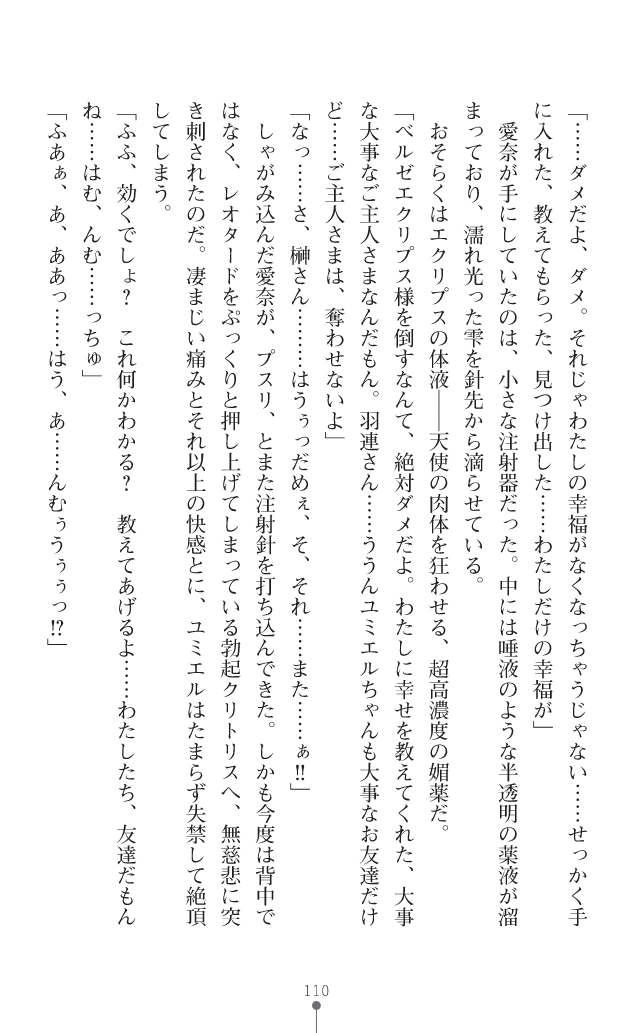 「……ダメだよ、ダメ。それじゃわたしの幸福がなくなっちゃうじゃない……せっかく手
に入れた、教えてもらった、見つけ出した……わたしだけの幸福が」
　愛奈が手にしていたのは、小さな注射器だった。中には唾液のような半透明の薬液が溜
まっており、濡れ光った雫を針先から滴らせている。
　おそらくはエクリプスの体液――天使の肉体を狂わせる、超高濃度の媚薬だ。
「ベルゼエクリプス様を倒すなんて、絶対ダメだよ。わたしに幸せを教えてくれた、大事
な大事なご主人さまなんだもん。羽連さん……ううんユミエルちゃんも大事なお友達だけ
ど……ご主人さまは、奪わせないよ」
「なっ……さ、榊さん………はうぅっだめぇ、そ、それ……また……ぁ!!」
　しゃがみ込んだ愛奈が、プスリ、とまた注射針を打ち込んできた。しかも今度は背中で
はなく、レオタードをぷっくりと押し上げてしまっている勃起クリトリスへ、無慈悲に突
き刺されたのだ。凄まじい痛みとそれ以上の快感とに、ユミエルはたまらず失禁して絶頂
してしまう。
「ふふ、効くでしょ？　これ何かわかる？　教えてあげるよ……わたしたち、友達だもん
ね……はむ、んむ……っちゅ」
「ふあぁ、あ、ああっ……はう、あ……んむぅうぅぅっ!?」
110